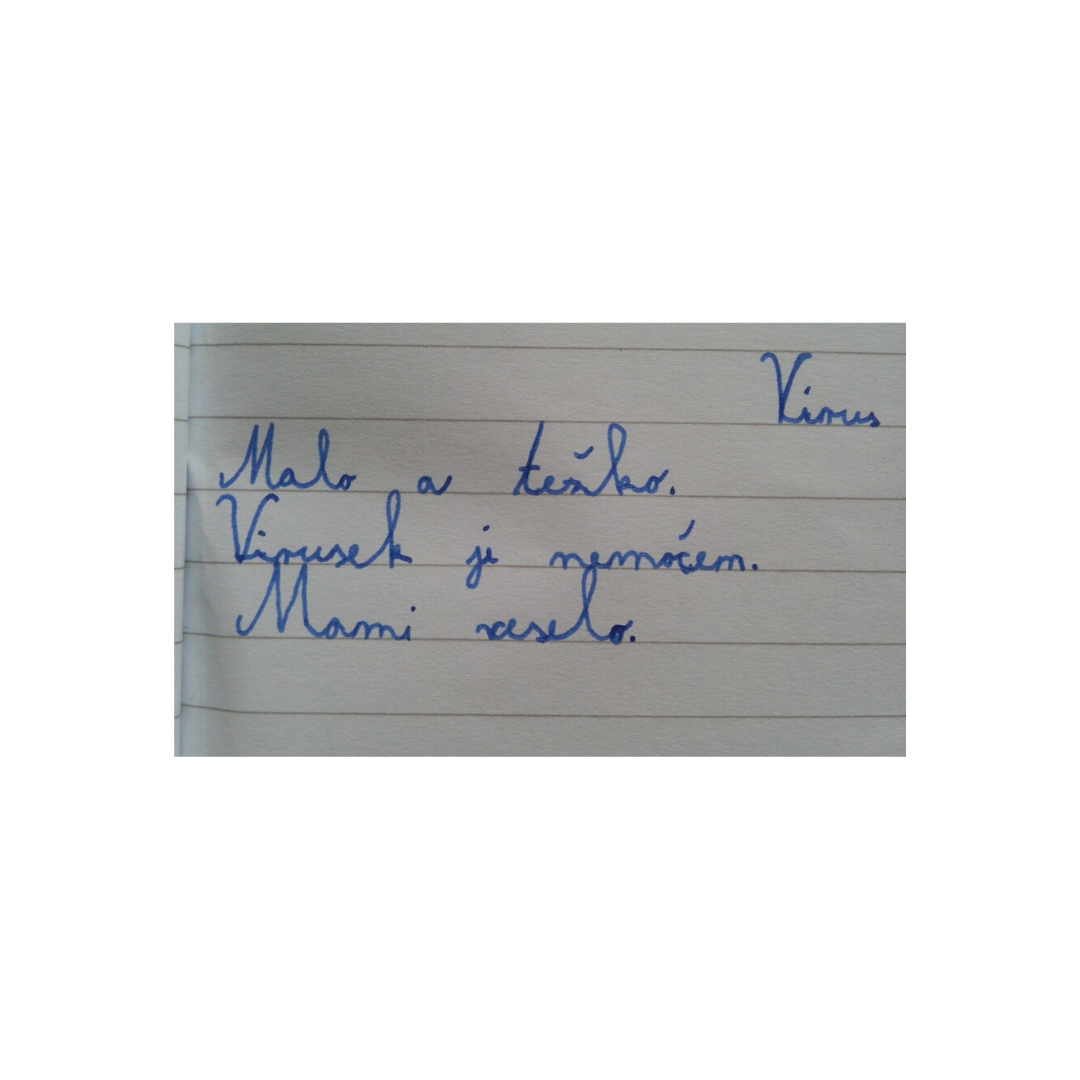 Virus
Malo a težko.
Virusek ji nemočem.
Mami veselo.